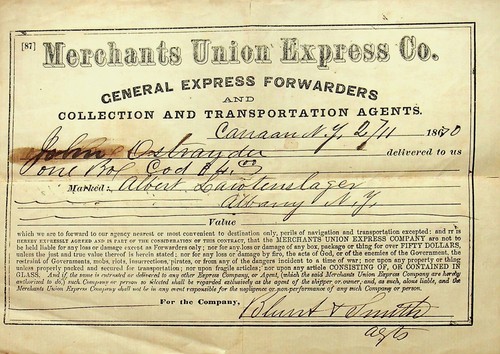 [87]
Merchants Union Express Co.
GENERAL EXPRESS FORWARDERS
AND
COLLECTION AND TRANSPORTATION AGENTS.
Canaan N.Y. 2/11 1870
John Ostrander delivered to us
one Box Cod
Marked: Albert
Albany N.Y.
Value
which we are to forward to our agency nearest or most convenient to destination only, perils of navigation and transportation excepted: and IT IS
HEREBY EXPRESSLY AGREED AND IS PART OF THE CONSIDERATION OF THIS CONTRACT, that the MERCHANTS UNION EXPRESS COMPANY are not to
be held liable for any loss or damage except as Forwarders only; nor for any loss or damage of any box, package or thing for over FIFTY DOLLARS,
unless the just and true value thereof is herein stated; nor for any loss or damage by fire, the acts of God, or of the enemies of the Government, the
restraint of Governments, mobs, riots, insurrections, pirates, or from any of the dangers incident to a time of war; nor upon any property or thing
unless properly packed and secured for transportation; nor upon fragile articles; nor upon any article CONSISTING OF, OR CONTAINED IN
GLASS. And if the same is entrusted or delivered to any other Express Company, or Agent, (which the said Merchants Union Express Company are hereby
authorized to do,) such Company or person so selected shall be regarded exclusively as the agent of the shipper or owner; and, as such, alone liable, and the
Merchants Union Express Company shall not be in any event responsible for the negligence or non-performance of any such Company or person.
For the Company,
Blunt & Smith
agts